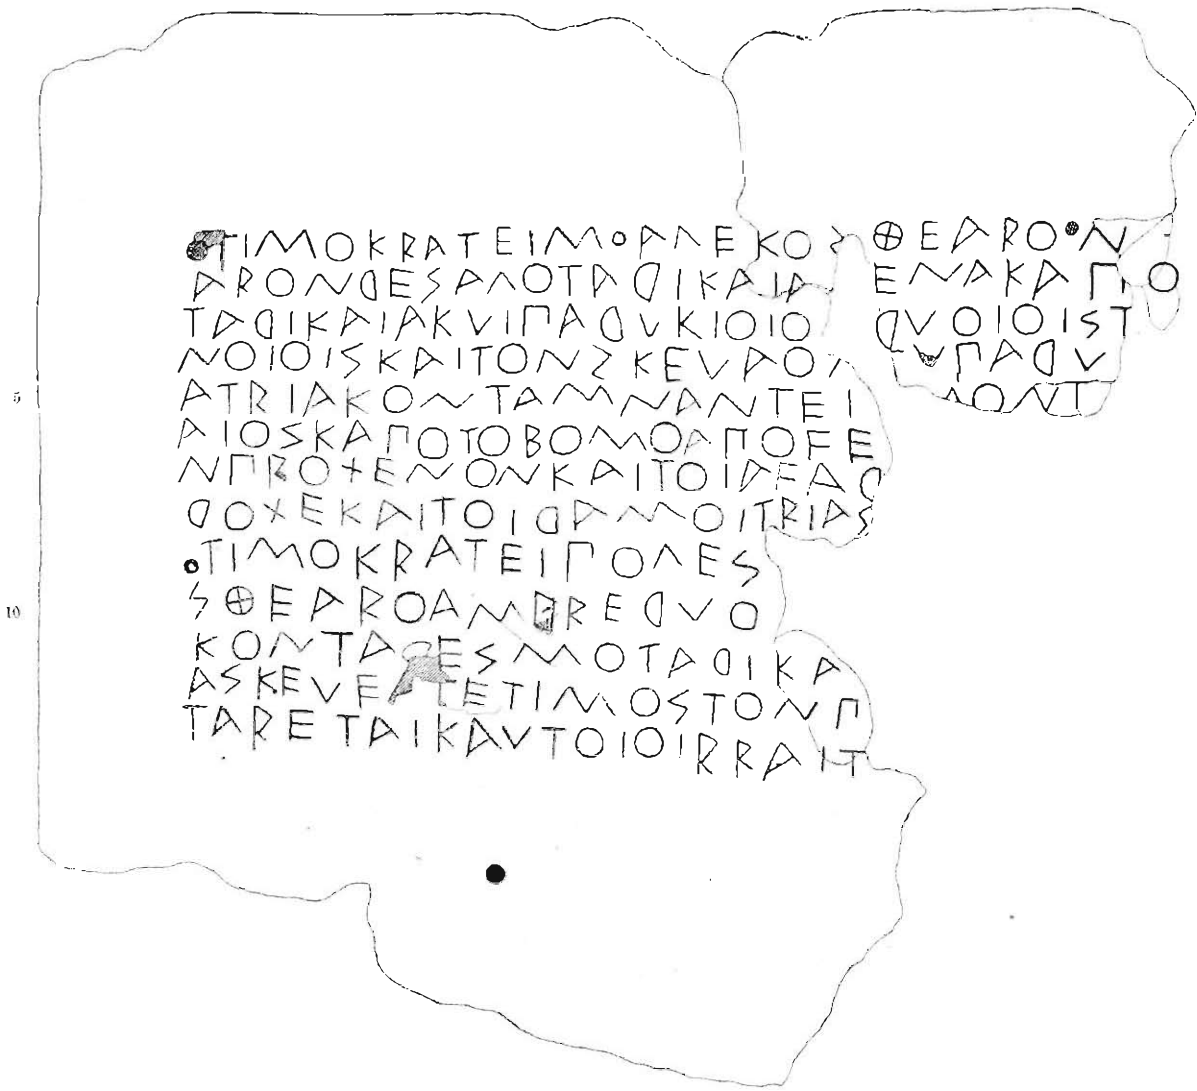 ΤΙΜΟΚΡΑΤΕΙΜΟΑΛΕΚΟΣ ΘΕΑΡΟΝ
ΑΡΟΝΔΕΣΑΛΟΤΑΔΙΚΑΙΑ ΕΝΑΚΑΠΟ
ΤΑΔΙΚΑΙΑΚΥΙΠΑΔΥΚΙΟΙΟ ΔΥΟΙΟΙΣΤ
ΝΟΙΟΙΣΚΑΙΤΟΝΣΚΕΥΑΟ ΥΠΑΔΥ
ΑΤΡΙΑΚΟΝΤΑΜΝΑΝΤΕΙ ΟΝΤ
ΑΙΟΣΚΑΠΟΤΟΒΟΜΟΑΠΟϜΕ
ΝΠΡΟΞΕΝΟΝΚΑΙΤΟΙΑϜΑΟ
ΔΟΞΕΚΑΙΤΟΙΔΑΜΟΙΤΡΙΑΣ
ΟΤΙΜΟΚΡΑΤΕΙΠΟΛΕΣ
ΣΘΕΑΡΟΑΜ ΡΕΔΥΟ
ΚΟΝΤΑ ΕΣΜΟΤΑΔΙΚΑ
ΑΣΚΕΥΕΑΤΕΤΙΜΟΣΤΟΝΠ
ΤΑΡΕΤΑΙΚΑΥΤΟΙΟΙΡΡΑΙΤ
5
10